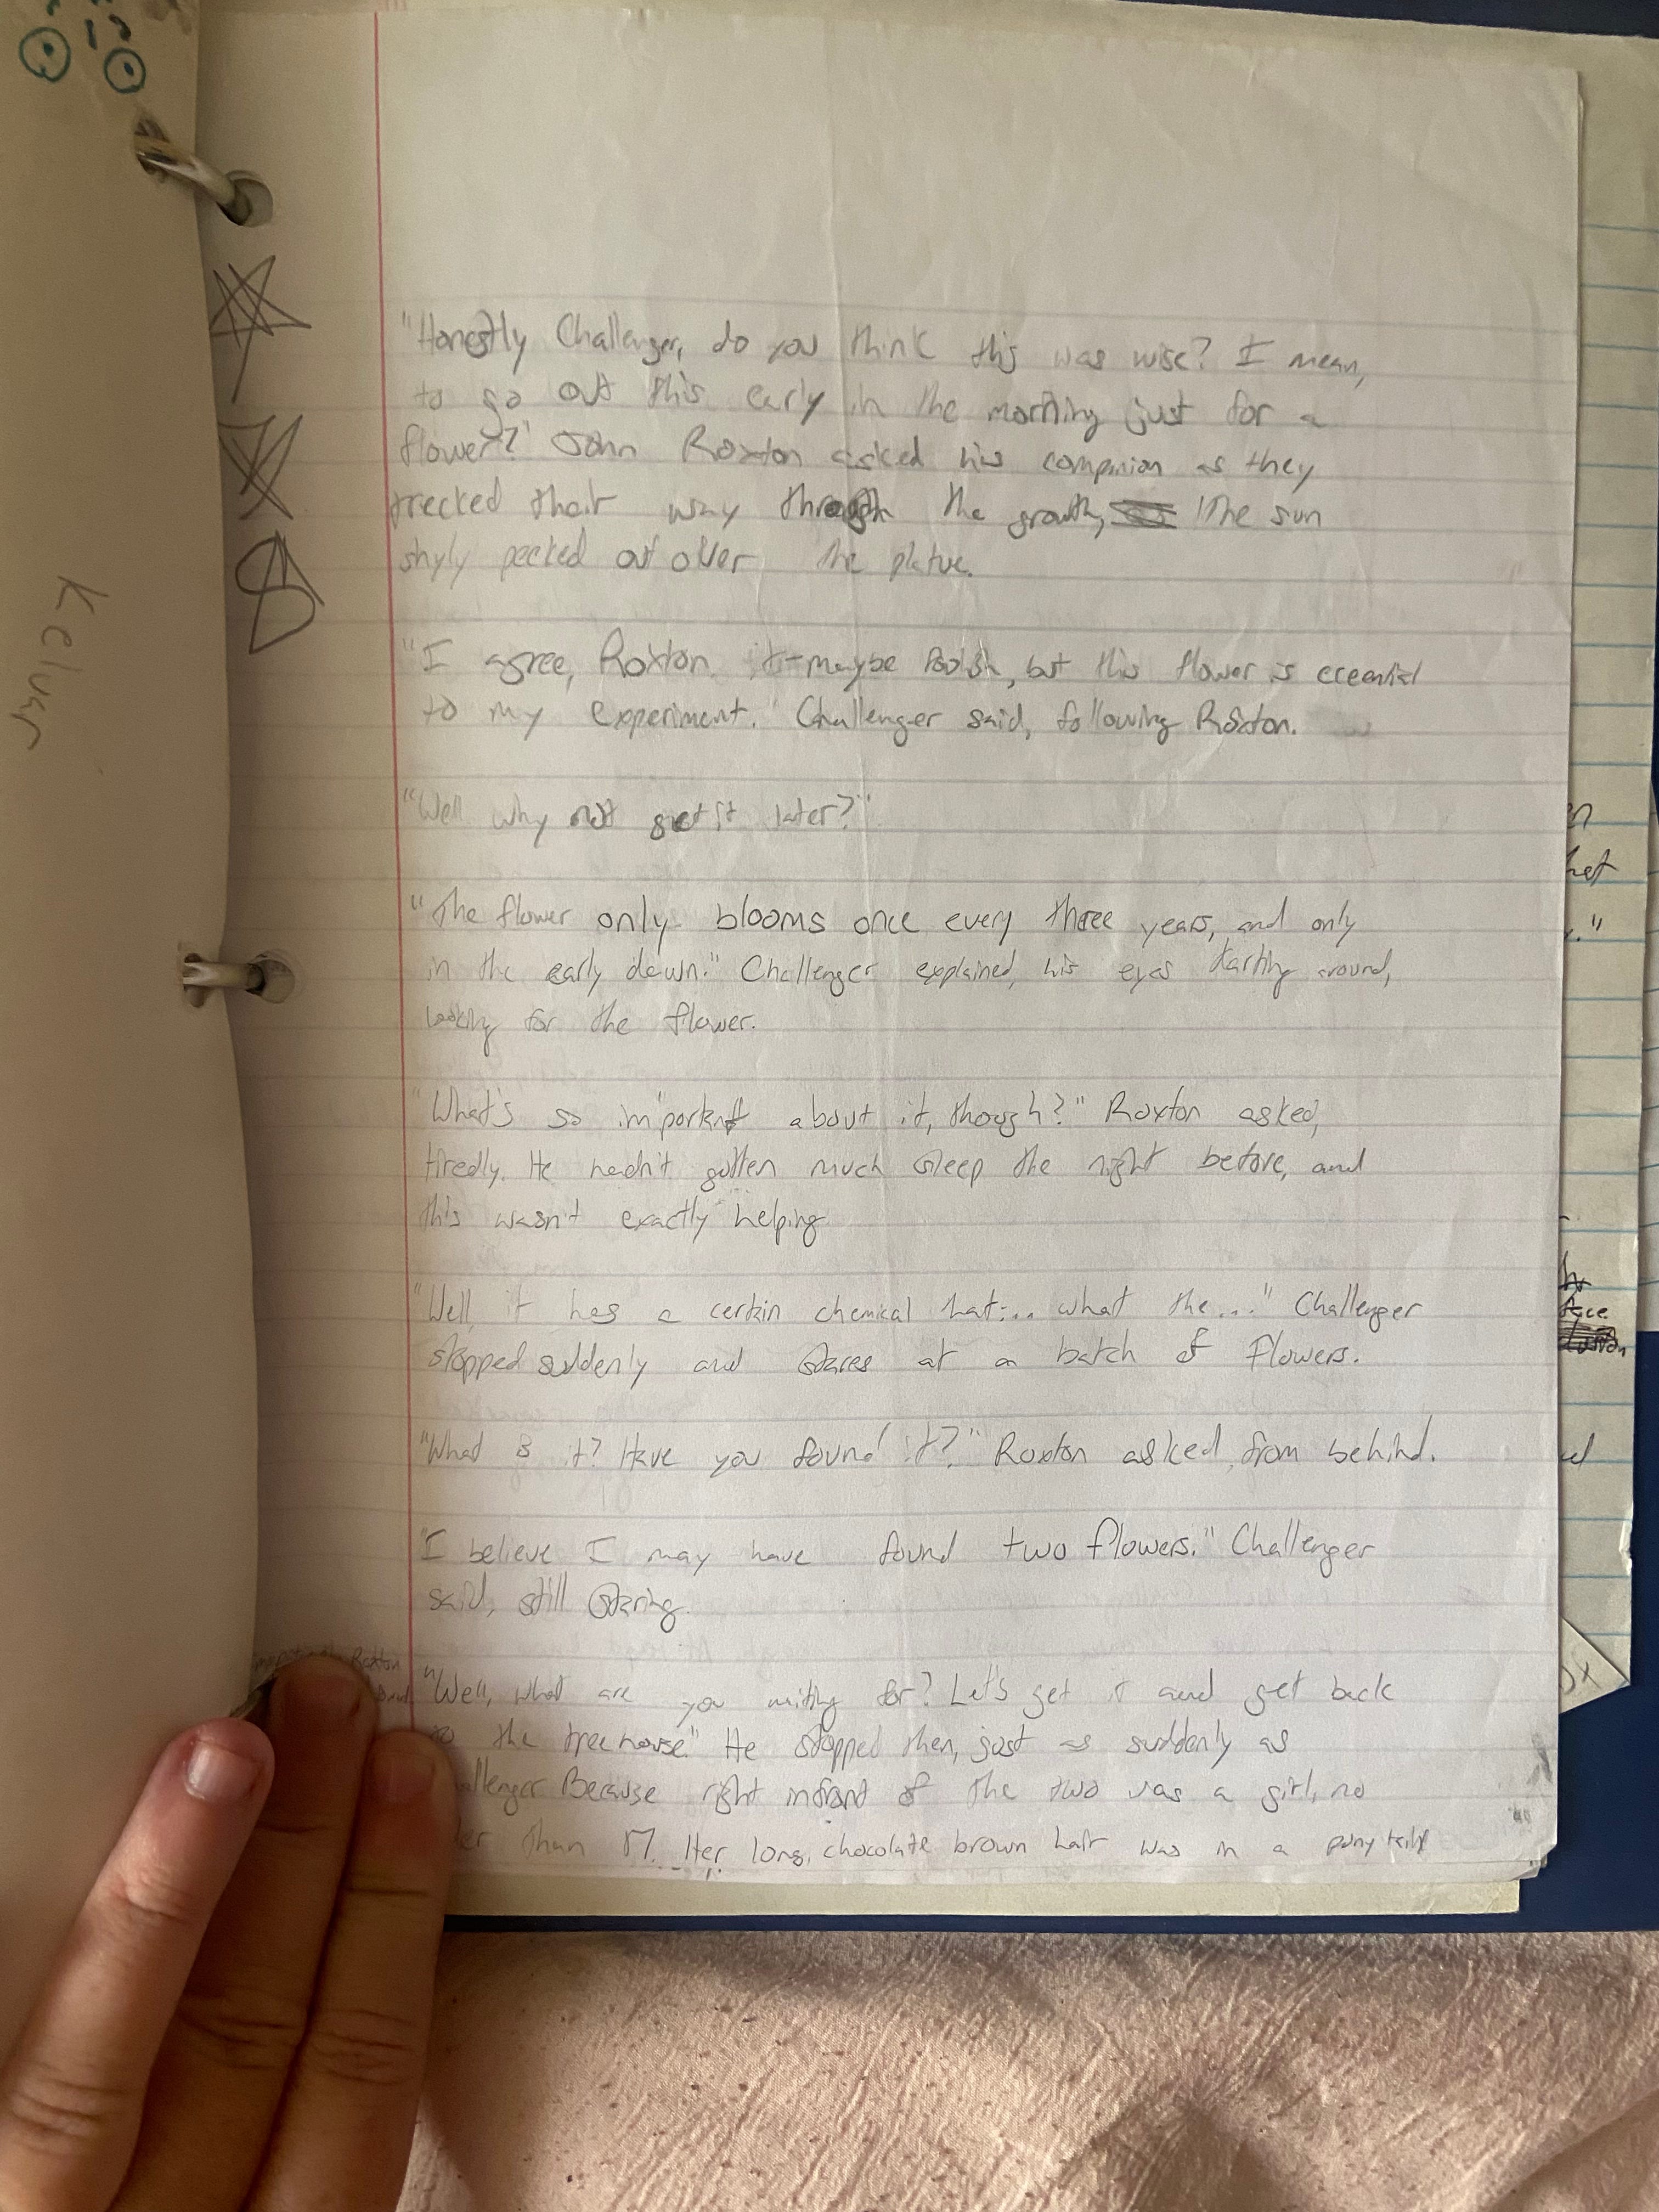 "Honestly Challenger, do you think this was wise? I mean,
to go out this early in the morning just for a
flower?" John Roxton asked his companion as they
trecked their way through the growth, The sun
shyly peeked out over the platue.
"I agree, Roxton. it maybe foolish, but this flower is ecential
to my experiment." Challenger said, following Roxton.
"Well why not get it later?"
"The flower only blooms once every three years, and only
in the early dawn." Challenger explained, his eyes darting around,
looking for the flower.
"What's so important about it, though?" Roxton asked,
tiredly. He hadn't gotten much sleep the night before, and
this wasn't exactly helping.
"Well, it has a certain chemical that... what the..." Challenger
stopped suddenly and stares at a batch of flowers.
"What is it? Have you found it?" Roxton asked from behind.
"I believe I may have found two flowers." Challenger
said, still staring.
Roxton
"Well, what are you waiting for? Let's get it and get back
to the treehouse." He stopped then, just as suddenly as
Because right infront of the two was a girl, no
than 17. Her long, chocolate brown hair was in a pony tail
Keluar